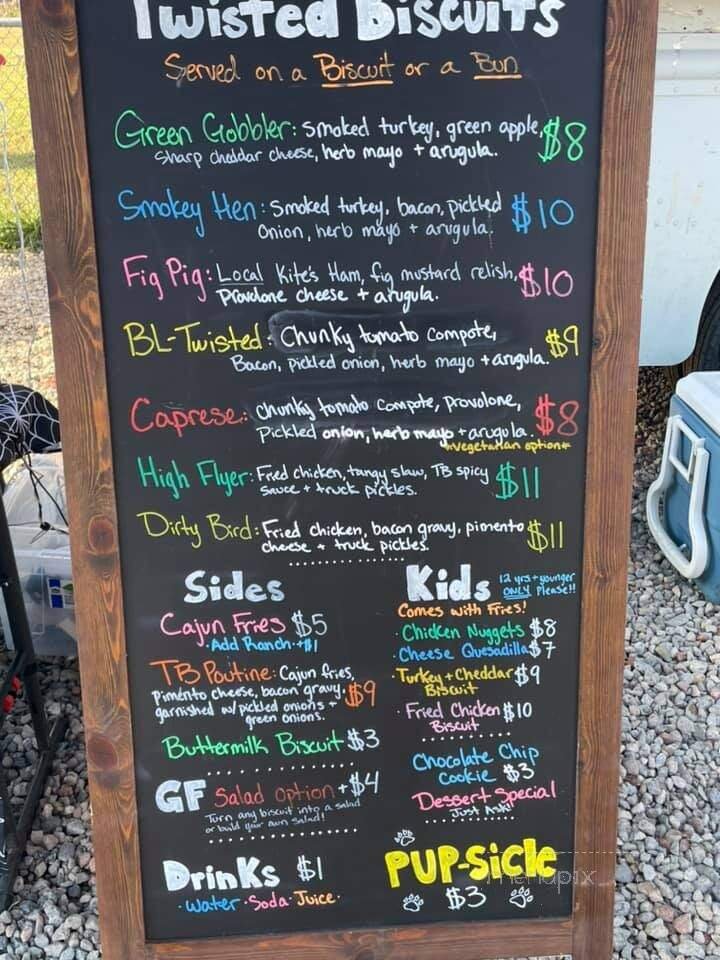 Twisted Biscuits
Served on a Biscuit or a Bun
Green Gobbler: Smoked turkey, green apple, $8
Sharp cheddar cheese, herb mayo + arugula.
Smokey Hen: Smoked turkey, bacon, pickled $10
Onion, herb mayo + arugula.
Fig Pig: Local Kite's Ham, fig mustard relish, $10
Provolone cheese + arugula.
BL-Twisted: Chunky tomato compote, $9
Bacon, pickled onion, herb mayo + arugula.
Caprese: Chunky tomato compote, provolone, $8
Pickled onion, herb mayo + arugula.
*vegetarian option*
High Flyer: Fried chicken, tangy slaw, TB spicy $11
Sauce + truck pickles.
Dirty Bird: Fried chicken, bacon gravy, pimento $11
cheese + truck pickles.
Sides
Cajun Fries $5
• Add Ranch +$1
TB Poutine: Cajun fries,
Pimento cheese, bacon gravy, $9
garnished w/ pickled onions +
green onions.
Buttermilk Biscuit $3
GF Salad Option +$4
Turn any biscuit into a salad
or build your own salad!
Drinks $1
• Water • Soda • Juice •
Kids 12 yrs + younger
ONLY Please!!
Comes with Fries!
• Chicken Nuggets $8
• Cheese Quesadilla $7
• Turkey + Cheddar $9
Biscuit
• Fried Chicken $10
Biscuit
Chocolate Chip
Cookie $3
Dessert Special
Just Ask!
PUP-sicle
$3
menupix